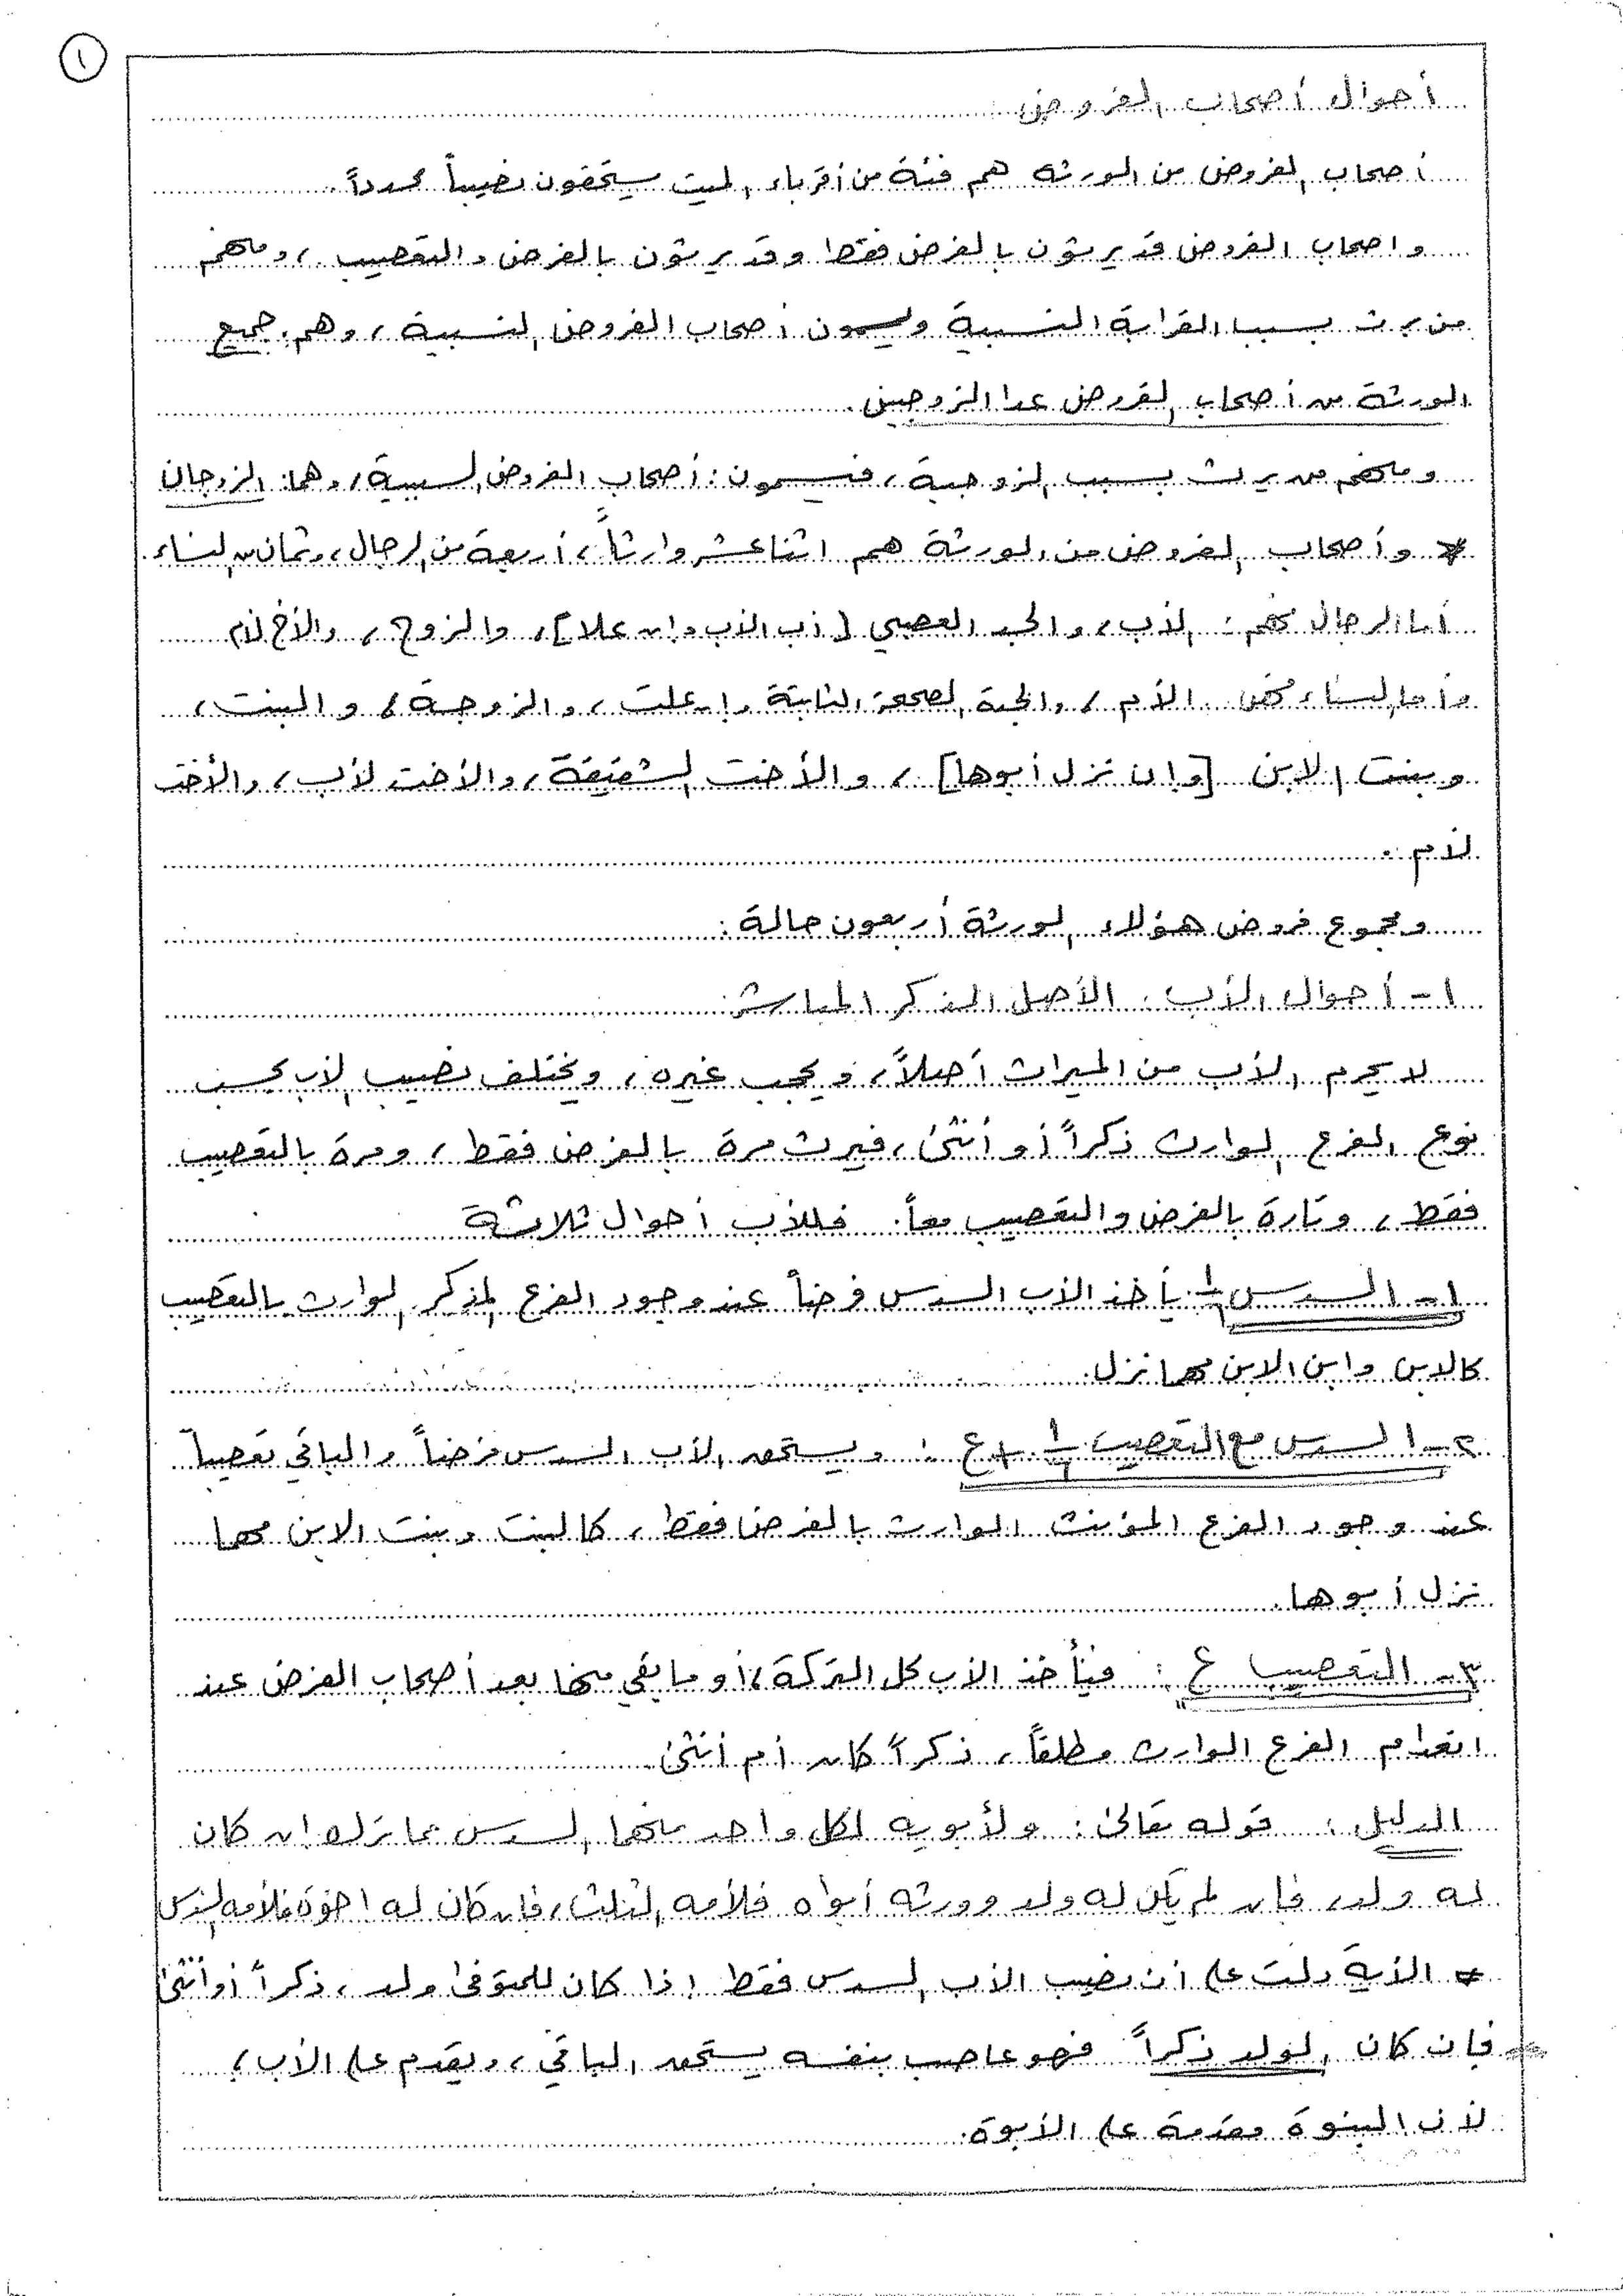 ١
أحوال أصحاب الفروض
أصحاب الفروض من الورثة هم فئة من أقرباء الميت يستحقون نصيباً محدداً.
واصحاب الفروض قد يرثون بالفرض فقط وقد يرثون بالفرض والتعصيب، ومنهم
من يرث بسبب القرابة النسبية ويسمون أصحاب الفروض النسبية، وهم: جميع
الورثة من أصحاب الفروض عدا الزوجين.
ومنهم من يرث بسبب الزوجية، فيسمون: أصحاب الفروض السببية، وهما: الزوجان
* وأصحاب الفروض من الورثة هم اثنا عشر وارثاً، أربعة من الرجال، وثمان من النساء.
أما الرجال فهم: الأب، والجد العصبي [أب الأب وإن علا]، والزوج، والأخ لأم
وأما النساء فهن: الأم، والجدة الصحيحة الثابتة وإن علت، والزوجة، والبنت،
وبنت الابن [وإن نزل أبوها]، والأخت الشقيقة، والأخت لأب، والأخت
لأم.
ومجموع فروض هؤلاء الورثة أربعون حالة:
١- أحوال الأب: الأصل المذكر المباشر:
لا يحرم الأب من الميراث أصلاً، ويحجب غيره، ويختلف نصيب الأب بحسب
نوع الفرع الوارث ذكراً أو أنثى، فيرث مرة بالفرض فقط، ومرة بالتعصيب
فقط، وتارة بالفرض والتعصيب معاً. فللأب أحوال ثلاثة
١- السدس ١/٦: يأخذ الأب السدس فرضاً عند وجود الفرع المذكر الوارث بالتعصيب
كالابن وابن الابن مهما نزل.
٢- السدس مع التعصيب ١/٦ + ع: ويستحق الأب السدس فرضاً والباقي تعصيباً
عند وجود الفرع المؤنث الوارث بالفرض فقط، كالبنت وبنت الابن مهما
نزل أبوها.
٣- التعصيب ع: فيأخذ الأب كل التركة، أو ما بقي منها بعد أصحاب الفرض عند
انعدام الفرع الوارث مطلقاً، ذكراً كان أم أنثى.
الدليل: قوله تعالى: ولأبويه لكل واحد منهما السدس مما ترك إن كان
له ولد، فإن لم يكن له ولد وورثه أبواه فلأمه الثلث، فإن كان له اخوة فلأمه السدس
* الآية دلت على أن نصيب الأب السدس فقط إذا كان للمتوفى ولد، ذكراً أو أنثى
فإن كان الولد ذكراً فهو عاصب بنفسه يستحق الباقي، ويقدم على الأب،
لأن البنوة مقدمة على الأبوة.